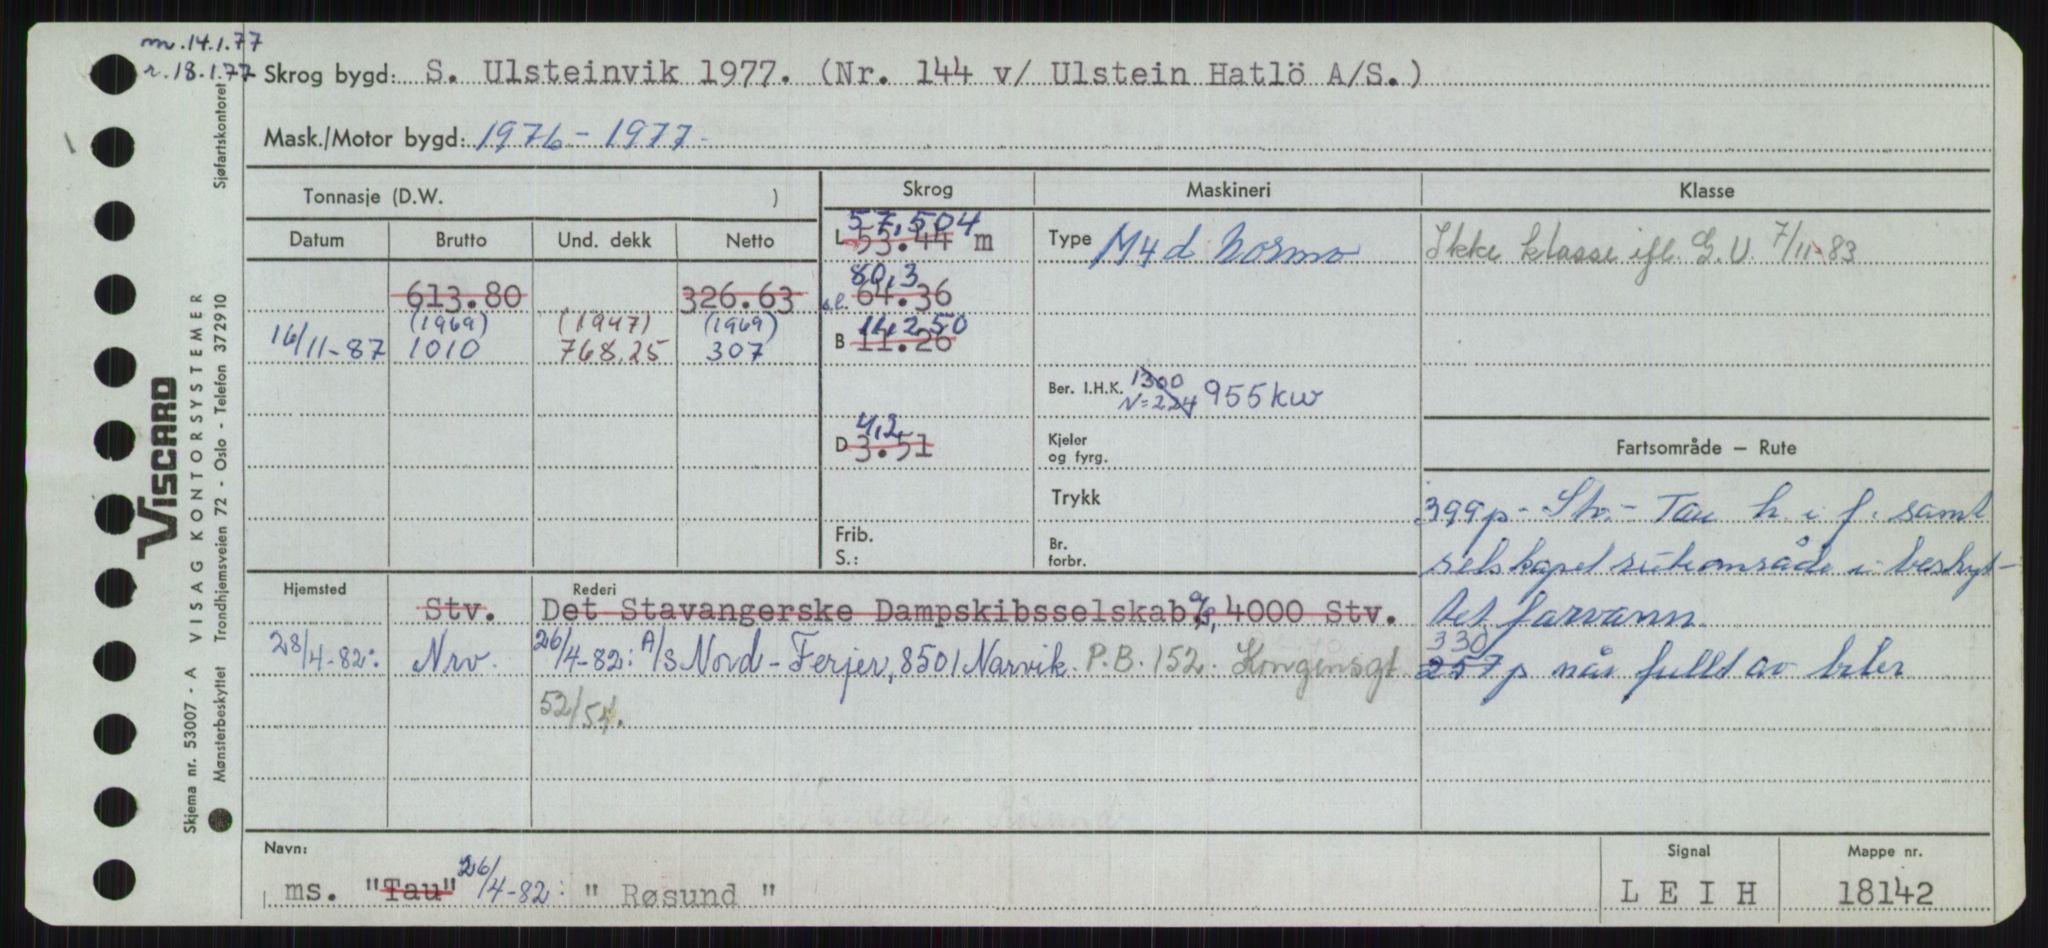 m. 14.1.77
r. 18.1.77
Skrog bygd: S. Ulsteinvik 1977. (Nr. 144 v/ Ulstein Hatlö A/S.)
Mask./Motor bygd: 1976 - 1977.
Tonnasje (D.W. )
Skrog
Maskineri
Klasse
Datum Brutto Und. dekk Netto
57,504
L 53.44 m
Type M4d Normo
Ikke klasse ifl. G.V. 7/11-83
80,3
613.80 326.63
s.l. 64.36
(1969) (1947) (1969)
16/11-87 1010 768.25 307
11,250
B 11.26
Ber. I.H.K. 1300 955 kw
N=224
4,2
D 3.51
Kjeler
og fyrg.
Fartsområde – Rute
Trykk
399 p - Stv. - Tau h. i f. samt
Frib.
S.:
Br.
forbr.
selskapet ruteområde i beskyt-
tet farvann.
330
257 p når fullt av biler
Hjemsted
Rederi
Stv. Det Stavangerske Dampskibsselskab A/S, 4000 Stv.
28/4-82: Nrv. 26/4-82: A/S Nord-Ferjer, 8501 Narvik. P.B. 152. Kongensgt
52/54.
Navn:
Signal
Mappe nr.
ms. "Tau" 26/4-82: " Røsund "
L E I H
18142
VISCARD
Skjema nr. 53007 - A VISAG KONTORSYSTEMER
Mønsterbeskyttet Trondhjemsveien 72 - Oslo - Telefon 372910
Sjøfartskontoret